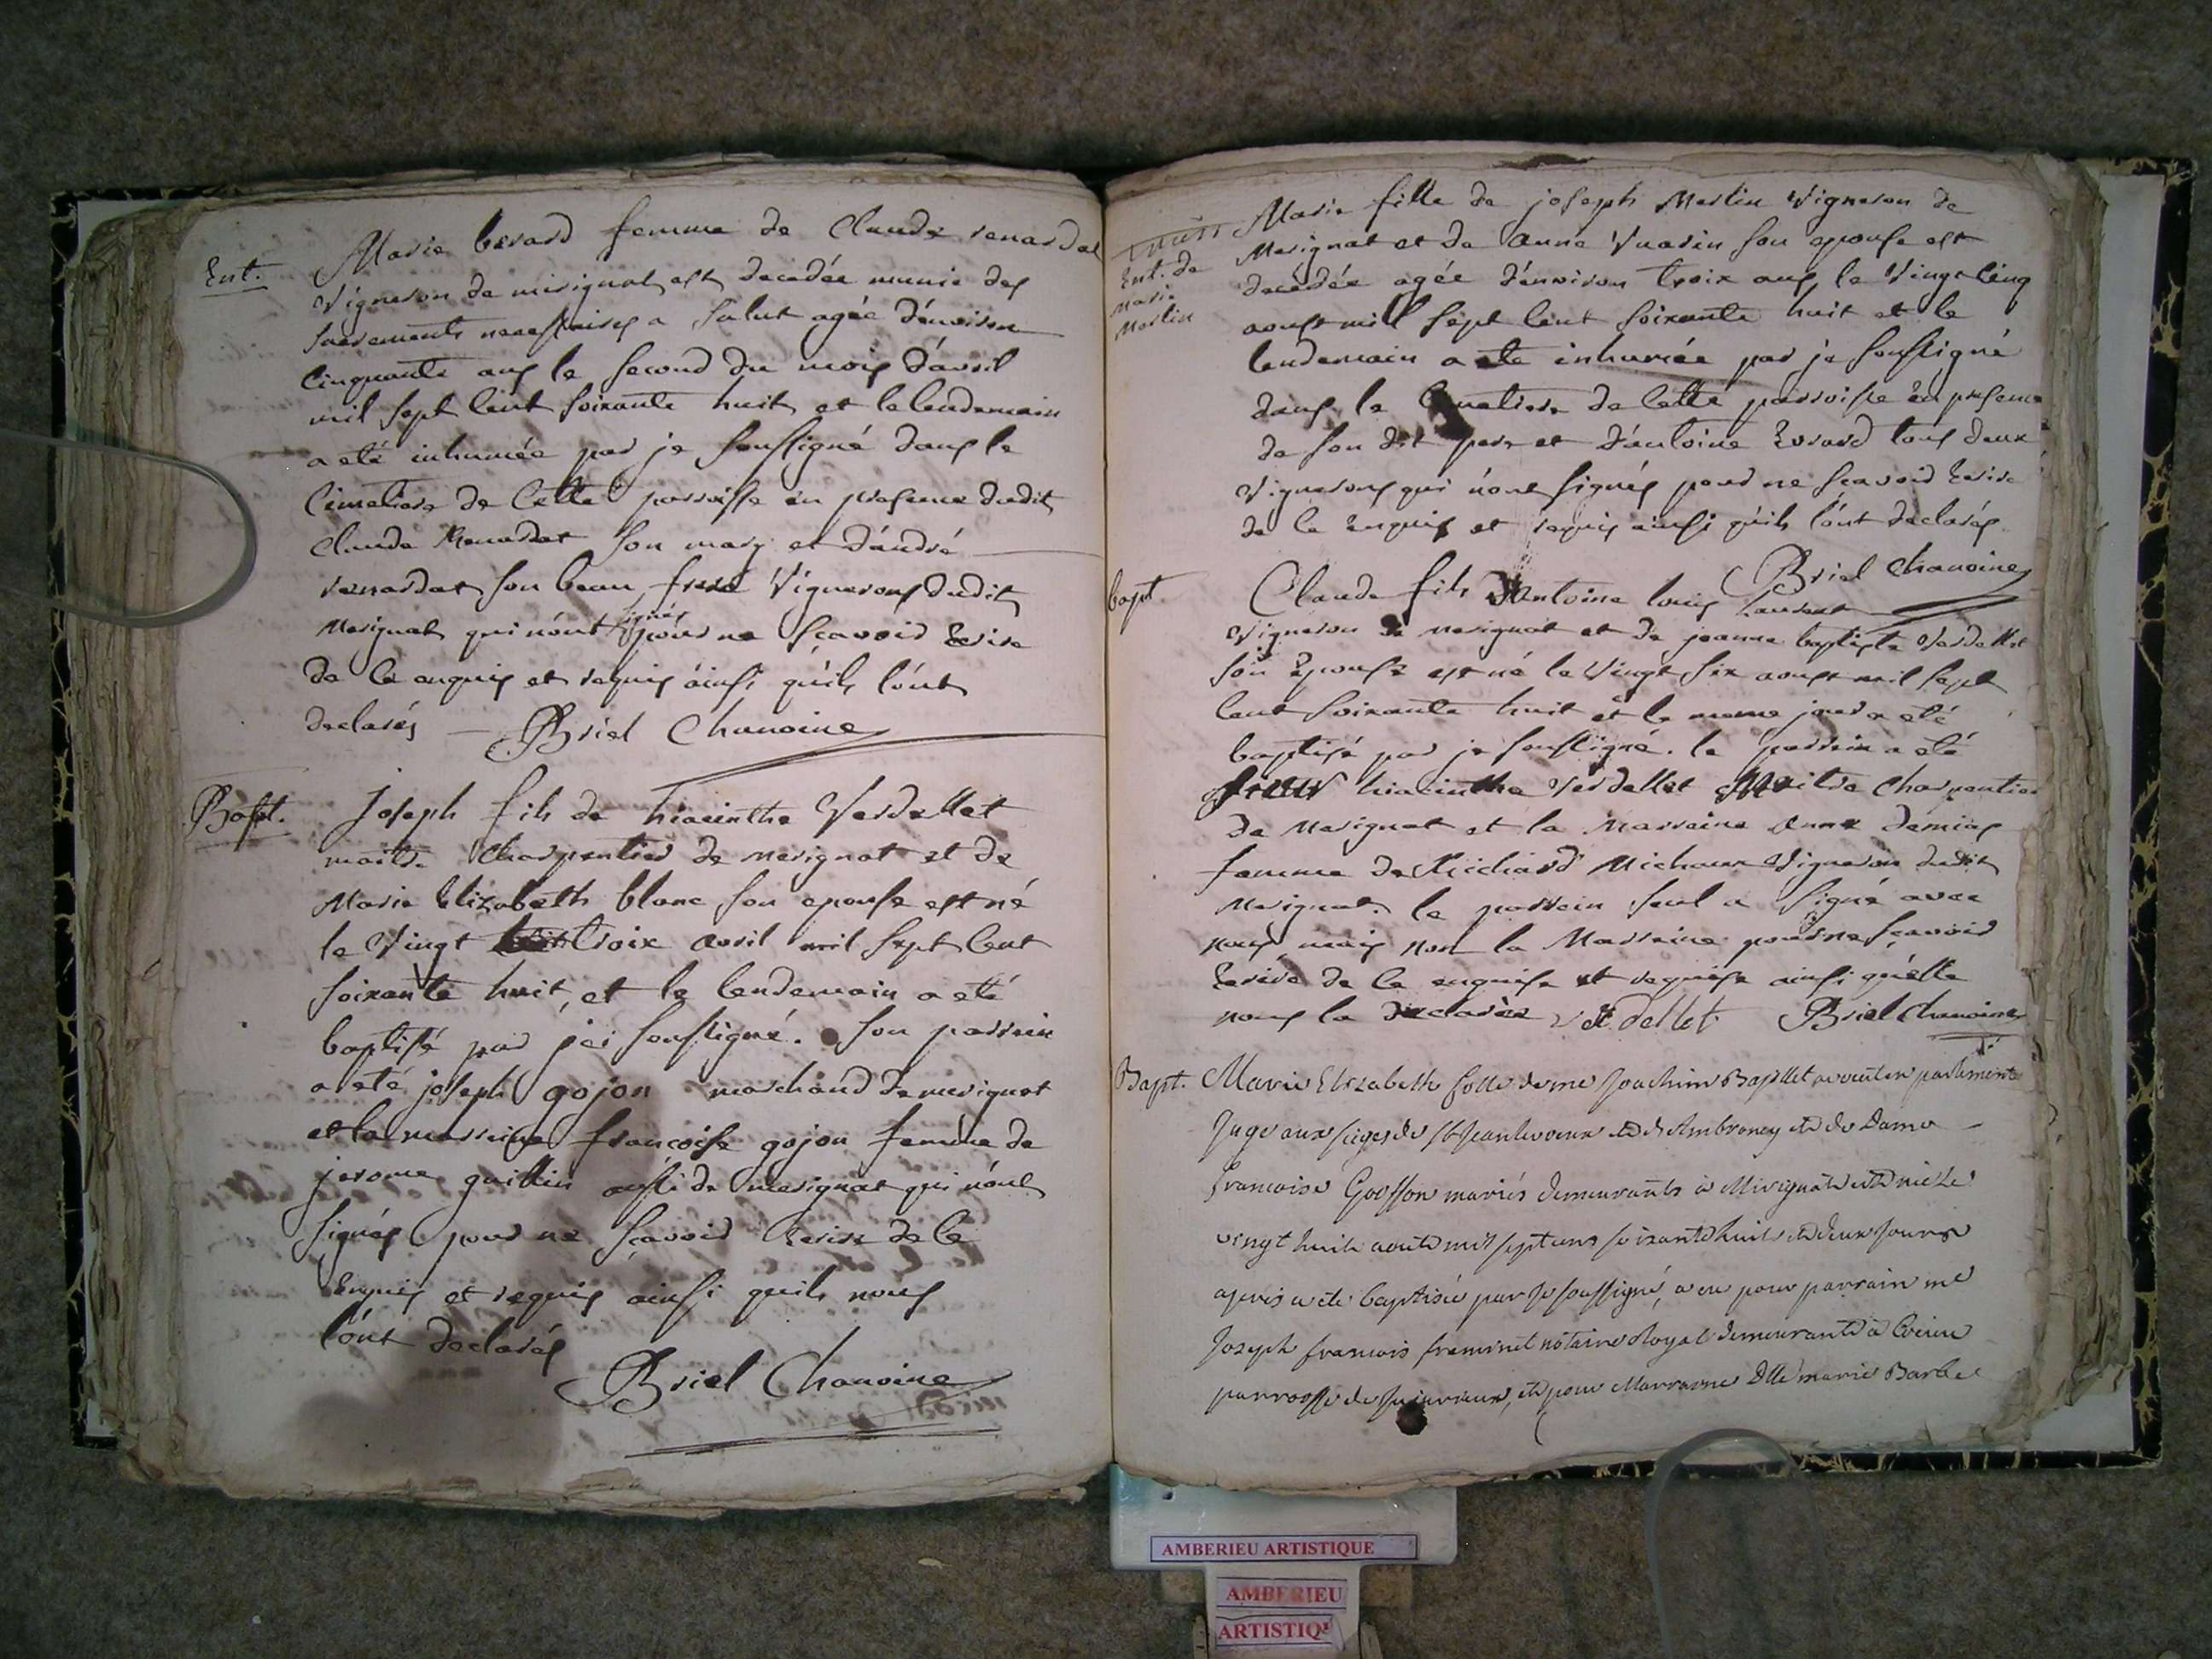 Ent.
Marie berard femme de Claude renardat
Vigneron de merignat est decedée munie des
sacrements necessaires a salut agée d'environ
cinquante ans le second du mois d'avril
mil sept cent soixante huit et le lendemain
a eté inhumée par je soussigné dans le
cimetiere de cette parroisse en presence dudit
Claude Renardat son mary et d'andré
renardat son beau frere Vignerons dudit
Merignat qui n'ont signés pour ne sçavoir Ecrire
de ce enquis et requis ainsi qu'ils l'ont
declarés Briel Chanoine
Bapt.
Joseph fils de hiacinthe Verdellet
maître Charpentier de merignat et de
Marie Elizabeth blanc son epouse est né
le Vingt troix avril mil sept cent
soixante huit, et le lendemain a eté
baptisé par jei soussigné. Son parrein
a eté joseph gojon marchand de merignat
et la marreine francoise gojon femme de
jerome guillin aussi de merignat qui n'ont
signés pour ne sçavoir Ecrire de ce
Enquis et requis ainsi qu'ils nous
l'ont declarés
Briel Chanoine
Ent. de
marie
Merlin
Marie fille de joseph Merlin Vigneron de
Merignat et de anne Vuarin son epouse est
decedée agée d'environ troix ans, le Vingt cinq
aoust mill sept cent soixante huit et le
lendemain a ete inhumée par je soussigné
dans le Cimetiere de cette parroisse en presence
de son dit pere et d'antoine Evrard tous deux
Vignerons qui n'ont signés pour ne sçavoir Ecrire
de ce Enquis et requis ainsi qu'ils l'ont declarés
Briel Chanoine
bapt.
Claude fils d'Antoine louis Laurent
Vigneron de merignat et de jeanne baptiste Verdellet
son Epouse est né le Vingt six aoust mil sept
cent soixante huit et le meme jour a eté
baptisé par je soussigné. le parrein a eté
sieur hiacinthe Verdellet Maitre Charpentier
de Merignat et la Marreine anne
femme de Richard Michaux Vigneron dudit
Merignat. le parrein seul a signé avec
nous mais non la Marreine pour ne sçavoir
Ecrire de ce enquise et requise ainsi qu'elle
nous la declarée verdellet Briel Chanoine
Bapt.
Marie Elizabeth fille de me Joachim Bapllet avocat en parlement
Juge aux sieges de st Jean levieux et d'Ambronay et de Dame
francoise Gousson mariés demeurants à Mérignat est née le
vingt huit aout mil sept cens soixante huit et deux jours
apres a eté baptisée par Je soussigné, a eu pour parrain me
Joseph francois freminet notaire Royal demeurant à
parroisse de Jujurieux, et pour Marraine Dlle marie Barbe
AMBERIEU ARTISTIQUE
AMBERIEU
ARTISTIQ